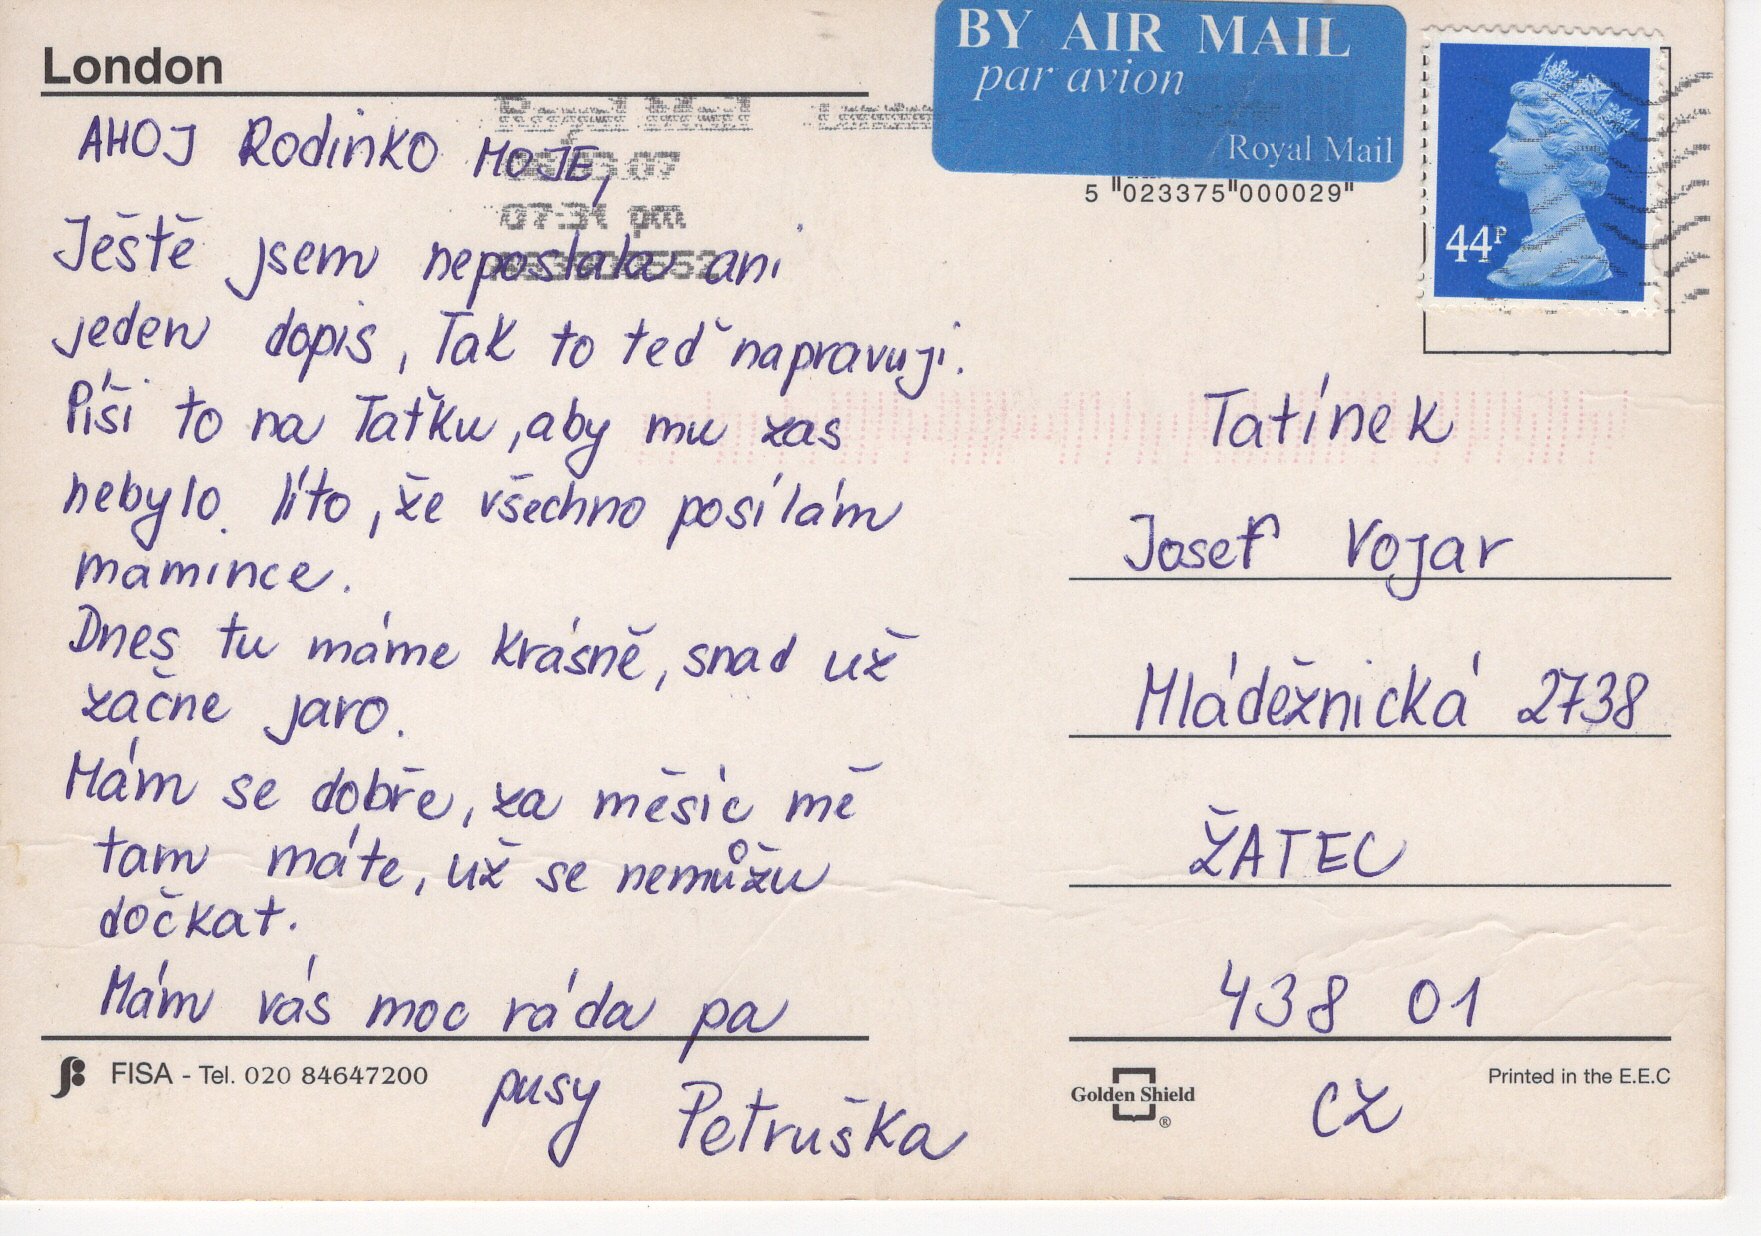 London
BY AIR MAIL
par avion
Royal Mail
5 023375 000029
44P
Royal Mail
07
07:31 pm
AHOJ Rodinko MOJE,
Ještě jsem neposlala ani
jeden dopis, Tak to teď napravuji.
Píši to na Taťku, aby mu zas
nebylo líto, že všechno posílám
mamince.
Dnes tu máme krásně, snad už
začne jaro.
Mám se dobře, za měsíc mě
tam máte, už se nemůžu
dočkat.
Mám vás moc ráda pa
pusy Petruška
Tatínek
Josef Vojar
Mláděžnická 2738
ŽATEC
438 01
CZ
FISA - Tel. 020 84647200
Golden Shield
®
Printed in the E.E.C